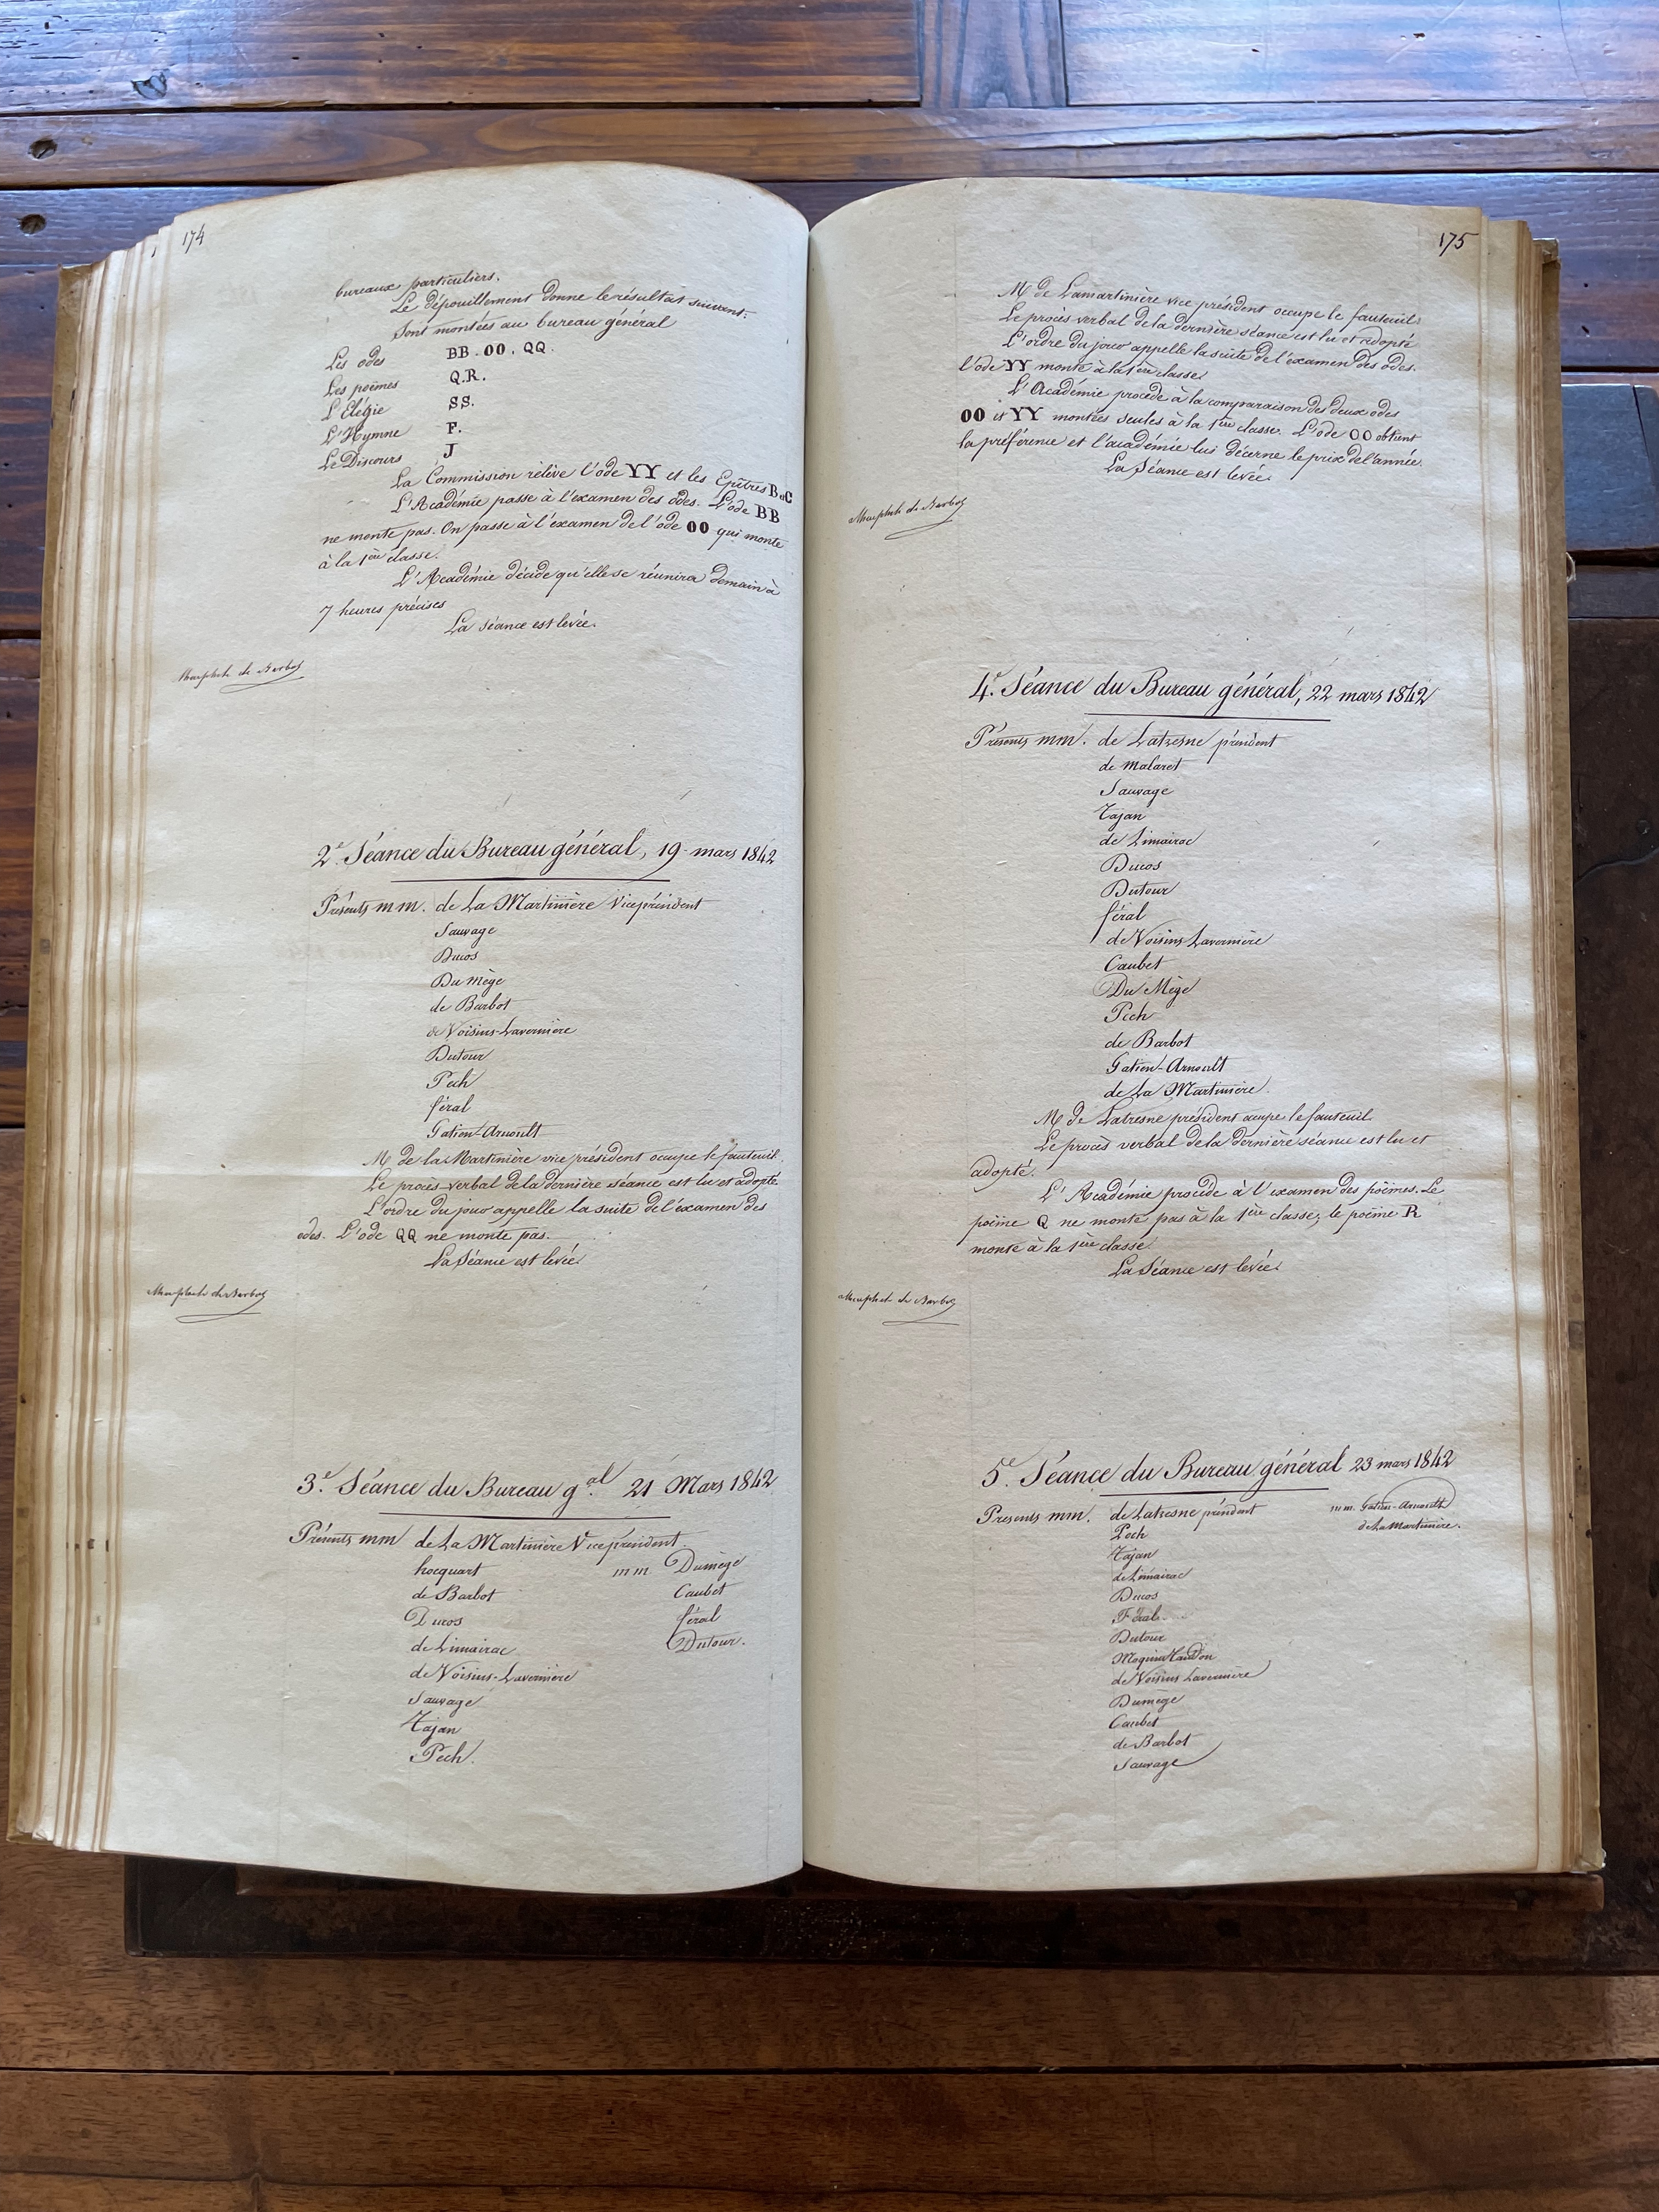 174
bureaux particuliers.
Le dépouillement donne le résultat suivant:
Sont montées au bureau général
Les odes BB. OO. QQ.
Les poëmes Q.R.
L'Elégie SS.
L'Hymne F.
Le Discours J
La Commission relève l'ode YY et les Epîtres B et C
L'Académie passe à l'examen des odes. L'ode BB
ne monte pas. On passe à l'examen de l'ode OO qui monte
à la 1ère classe.
L'Académie décide qu'elle se réunira demain à
7 heures précises
La séance est levée.
de Barbot
2e. Séance du Bureau général, 19 mars 1842
Présents mm. de La Martinière Vice président
Sauvage
Ducos
Du Mège
de Barbot
de Voisins-Lavernière
Dutour
Pech
féral
Gatien-Arnoult
M de la Martinière vice président occupe le fauteuil.
Le procès-verbal de la dernière séance est lu et adopté.
L'ordre du jour appelle la suite de l'examen des
odes. L'ode QQ ne monte pas.
La Séance est levée.
de Barbot
3e. Séance du Bureau gal. 21 Mars 1842
Présents mm de La Martinière Vice président.
hocquart mm Dumège
de Barbot Caubet
Ducos féral
de Limairac Dutour.
de Voisins-Lavernière
Sauvage
Tajan
Pech.
175
M de Lamartinière vice président occupe le fauteuil.
Le procès verbal de la dernière séance est lu et adopté
L'ordre du jour appelle la suite de l'examen des odes.
l'ode YY monte à la 1ère classe.
L'Académie procède à la comparaison des deux odes
OO et YY montées seules à la 1ère classe. L'ode OO obtient
la préférence et l'académie lui décerne le prix de l'année.
La Séance est levée.
de Barbot
4e. Séance du Bureau général, 22 mars 1842
Présents mm. de Latresne président
de Malaret
Sauvage
Tajan
de Limairac
Ducos
Dutour
féral
de Voisins Lavernière
Caubet
Du Mège
Pech
de Barbot
Gatien-Arnoult
de La Martinière.
M de Latresne président occupe le fauteuil
Le procès verbal de la dernière séance est lu et
adopté.
L'Académie procède à l'examen des poëmes. Le
poëme Q ne monte pas à la 1ère classe, le poëme R
monte à la 1ère classe
La Séance est levée.
de Barbot
5e. Séance du Bureau général 23 mars 1842
Presents mm. de Latresne président mm. Gatien-Arnoult
Pech de La Martinière.
Tajan
de Limairac
Ducos
Féral
Dutour
Moquin Tandon
de Voisins Lavernière
Dumège
Caubet
de Barbot
Sauvage